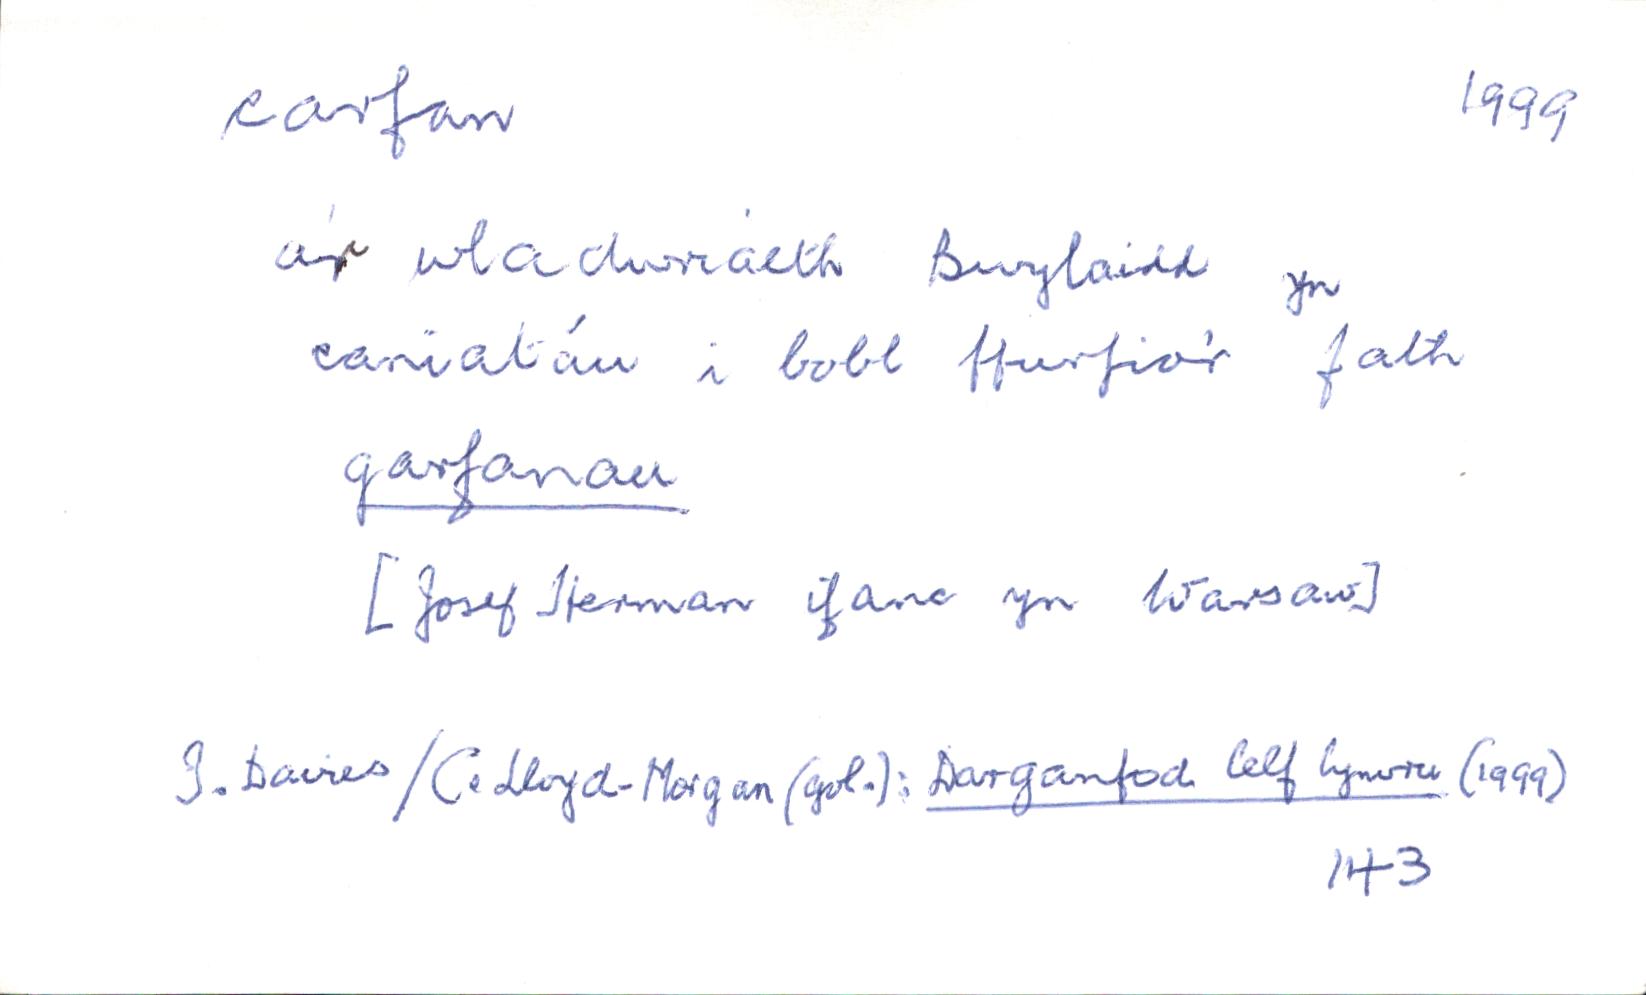 carfan 1999
a'r wladwriaeth Bwylaidd yn
caniatáu i bobl ffurfio'r fath
garfanau
[Josef Herman ifanc yn Warsaw]
I. Davies / C. Lloyd-Morgan (gol.): Darganfod Celf Cymru (1999)
143